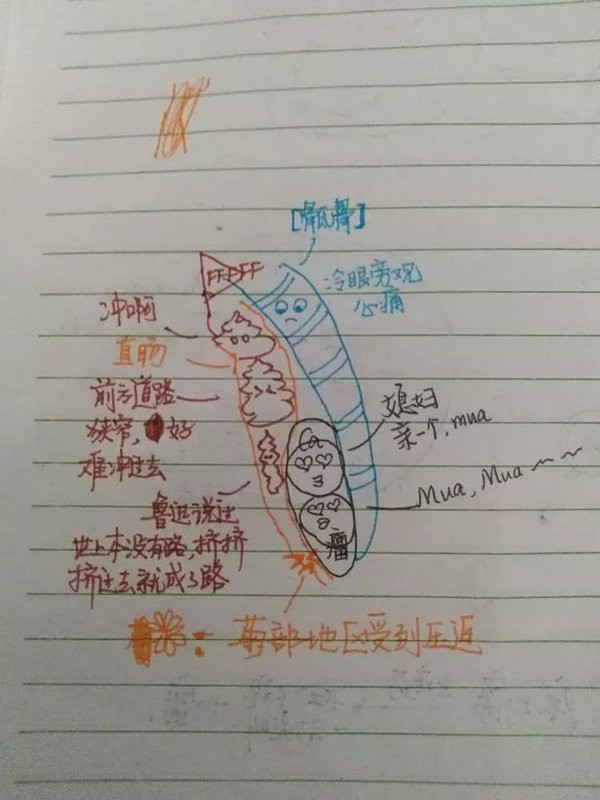 [骶尾骨]
FFFFFF
冷眼旁观
心痛
冲啊
直肠
前方道路
狭窄,好
难冲过去
媳妇
亲一个,mua
Mua,Mua~~
鲁迅说过
世上本没有路,挤挤
挤过去就成了路
瘤
菊部地区受到压迫